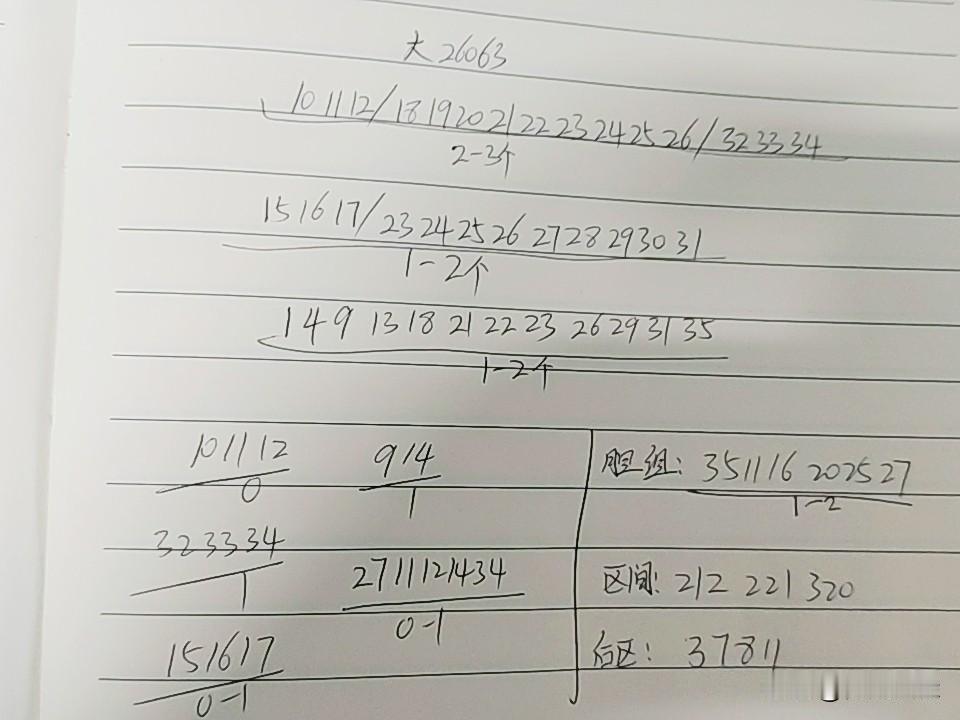 大26063
10 11 12/18 19 20 21 22 23 24 25 26/32 33 34
2-3个
15 16 17/23 24 25 26 27 28 29 30 31
1-2个
1 4 9 13 18 21 22 23 26 29 31 35
1-2个
10 11 12
0
9 14
1
32 33 34
1
2 7 11 12 14 34
0-1
15 16 17
0-1
胆组: 3 5 11 16 20 25 27
1-2
区间: 212 221 320
后区: 3 7 8 11